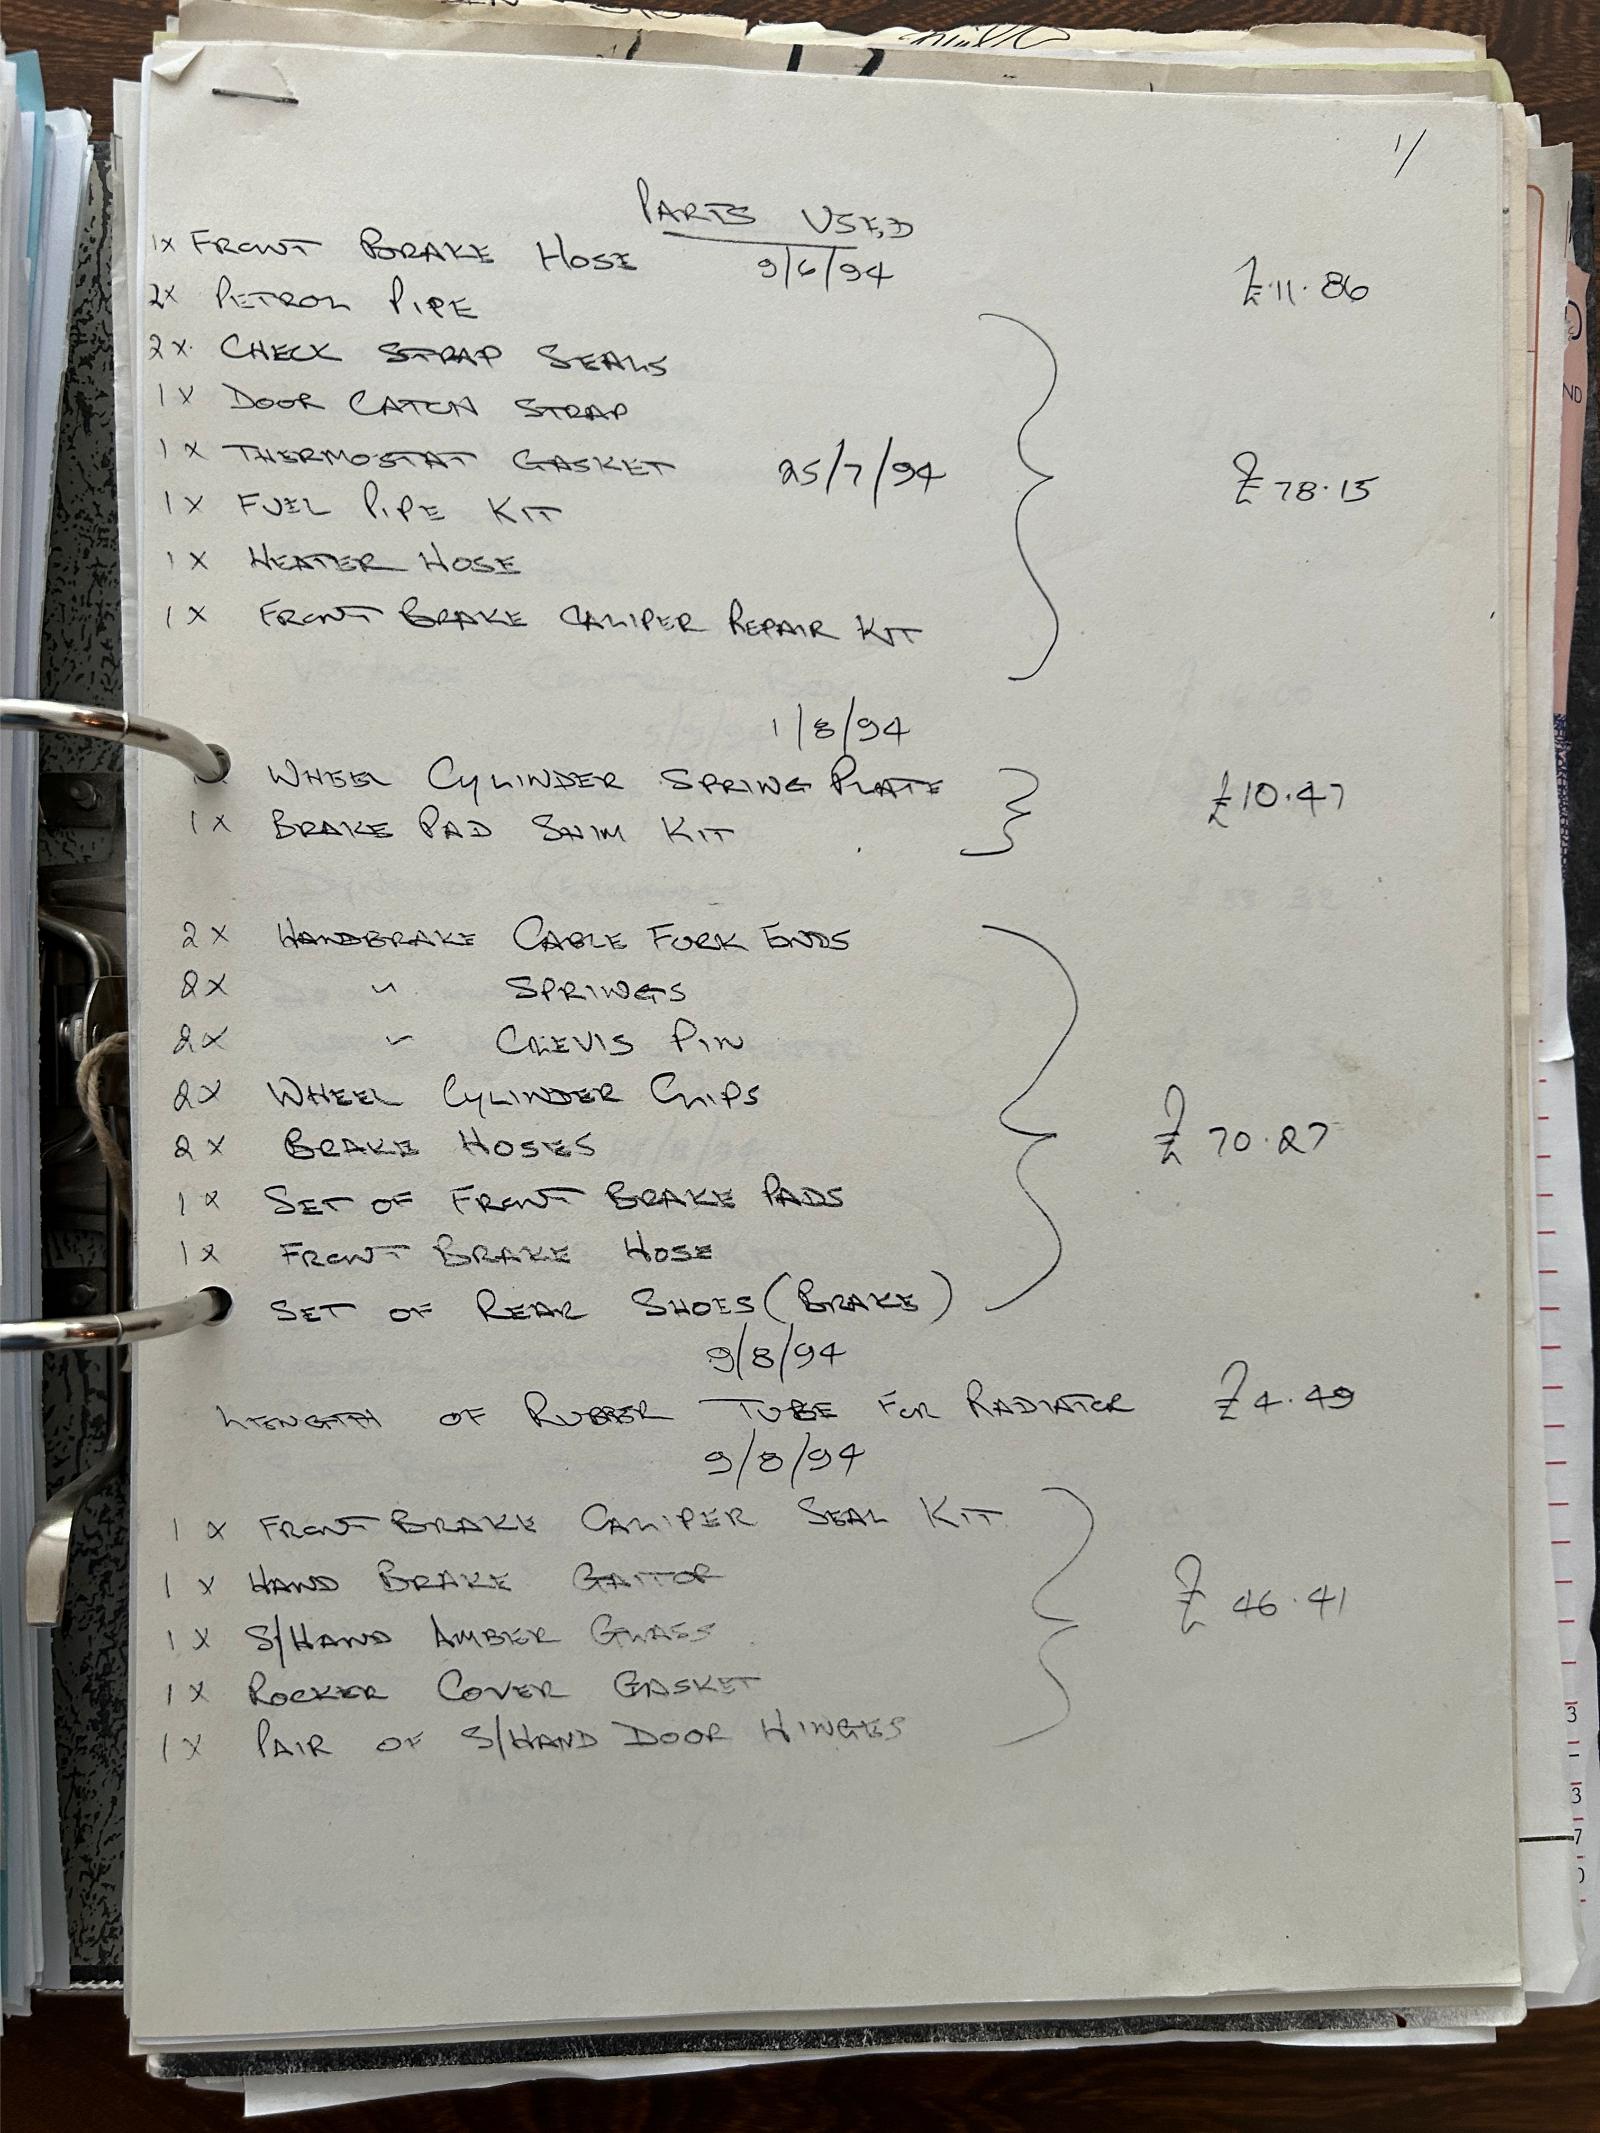 1/
PARTS USED
1x FRONT BRAKE HOSE 9/6/94 £11.86
2x PETROL PIPE
2x CHECK STRAP SEALS
1x DOOR CATCH STRAP
1x THERMOSTAT GASKET 25/7/94 £78.15
1x FUEL PIPE KIT
1x HEATER HOSE
1x FRONT BRAKE CALIPER REPAIR KIT
1/8/94
WHEEL CYLINDER SPRING PLATE £10.47
1x BRAKE PAD SHIM KIT
2x HANDBRAKE CABLE FORK ENDS
2x " SPRINGS
2x " CLEVIS PIN
2x WHEEL CYLINDER CLIPS
2x BRAKE HOSES £70.27
1x SET OF FRONT BRAKE PADS
1x FRONT BRAKE HOSE
SET OF REAR SHOES (BRAKE)
9/8/94
LENGTH OF RUBBER TUBE FOR RADIATOR £4.49
9/8/94
1x FRONT BRAKE CALIPER SEAL KIT
1x HAND BRAKE GAITOR
1x S/HAND AMBER GLASS £46.41
1x ROCKER COVER GASKET
1x PAIR OF S/HAND DOOR HINGES